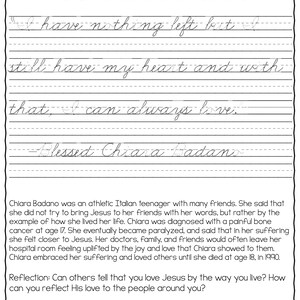 "I have nothing left but I
still have my heart and with
that, I can always love."
-Blessed Chiara Badano
Chiara Badano was an athletic Italian teenager with many friends. She said that
she did not try to bring Jesus to her friends with her words, but rather by the
example of how she lived her life. Chiara was diagnosed with a painful bone
cancer at age 17. She eventually became paralyzed, and said that in her suffering
she felt closer to Jesus. Her doctors, family, and friends would often leave her
hospital room feeling uplifted by the joy and love that Chiara showed to them.
Chiara embraced her suffering and loved others until she died at age 18, in 1990.
Reflection: Can others tell that you love Jesus by the way you live? How
can you reflect His love to the people around you?